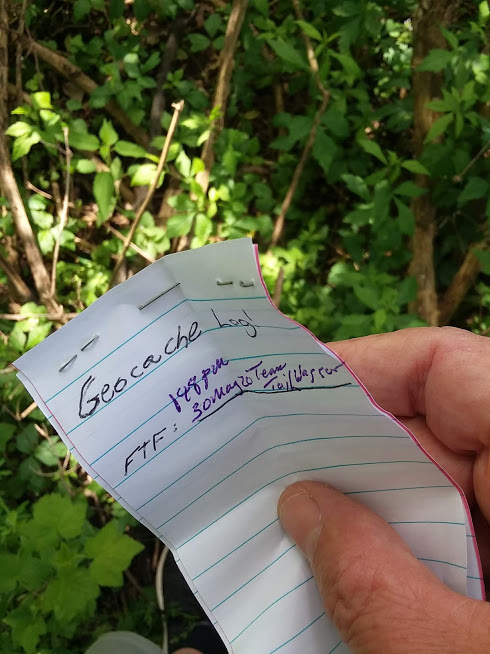 Geocache Log!
148pm
FTF: 30May20 Team
Tail Wagger